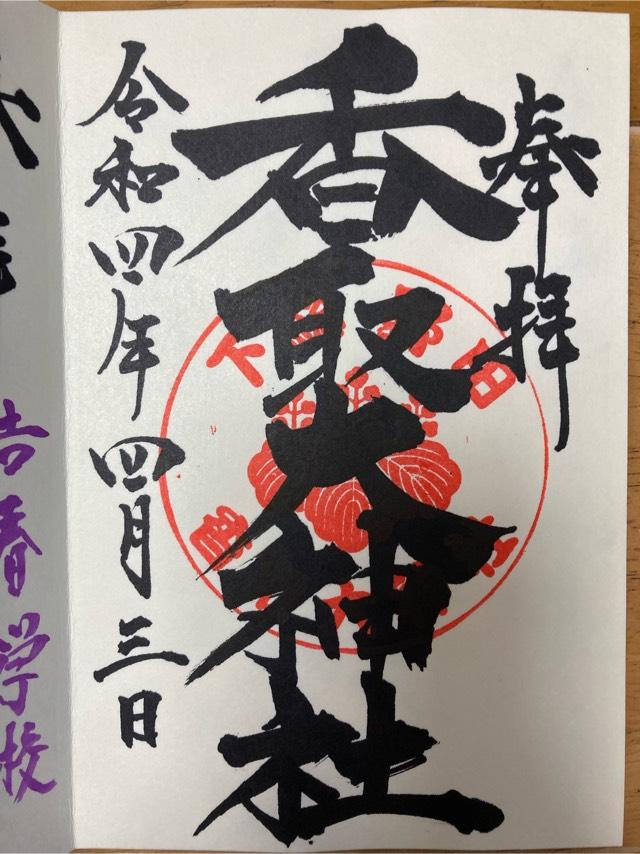 奉拝
香取大神社
令和四年四月三日
吉春学校